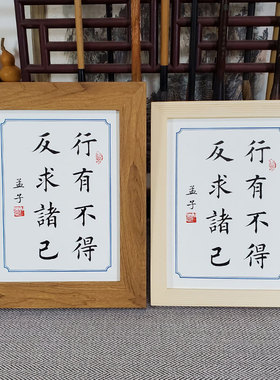 行有不得
反求諸己
孟子
行有不得
反求諸己
孟子